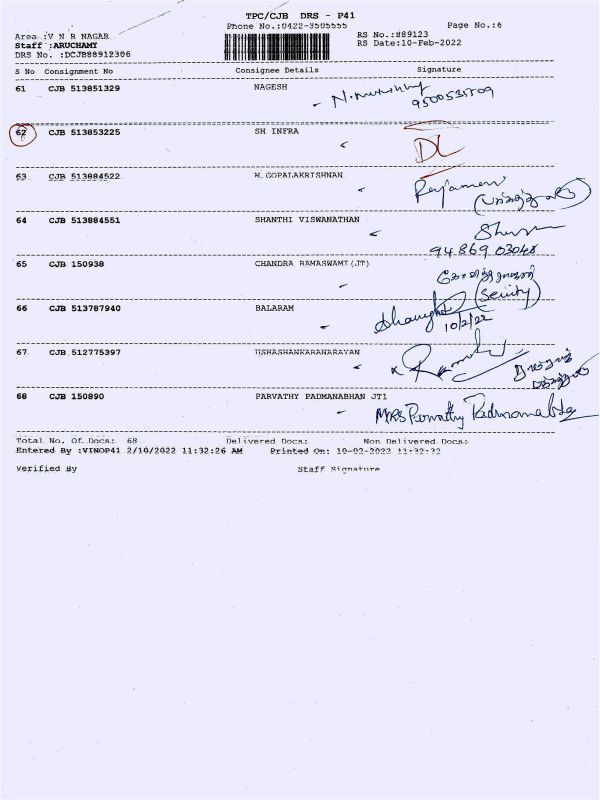 TPC/CJB DRS - P41
Phone No.:0422-3505555 Page No.:6
Area :V N R NAGAR RS No.:889123
Staff :ARUCHAMY RS Date:10-Feb-2022
DRS No. :DCJB88912306
S No Consignment No Consignee Details Signature
61 CJB 513851329 NAGESH
9500535709
62 CJB 513853225 SH INFRA DL
63 CJB 513884522 M.GOPALAKRISHNAN
64 CJB 513884551 SHANTHI VISWANATHAN
94869 03048
65 CJB 150938 CHANDRA RAMASWAMI(JT)
66 CJB 513787940 BALARAM
10/2/22
67 CJB 512775397 USHASHANKARANARAYAN
68 CJB 150890 PARVATHY PADMANABHAN JT1
MRS Parvathy Padmanabha
Total No. Of Docs: 68 Delivered Docs: Non Delivered Docs:
Entered By :VINOP41 2/10/2022 11:32:26 AM Printed On: 10-02-2022 11:32:32
Verified By Staff Signature